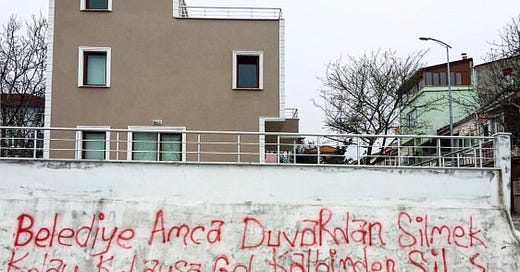 Belediye Amca Duvardan Silmek
Kolay Kolaysa Gel Kalbimden Sil